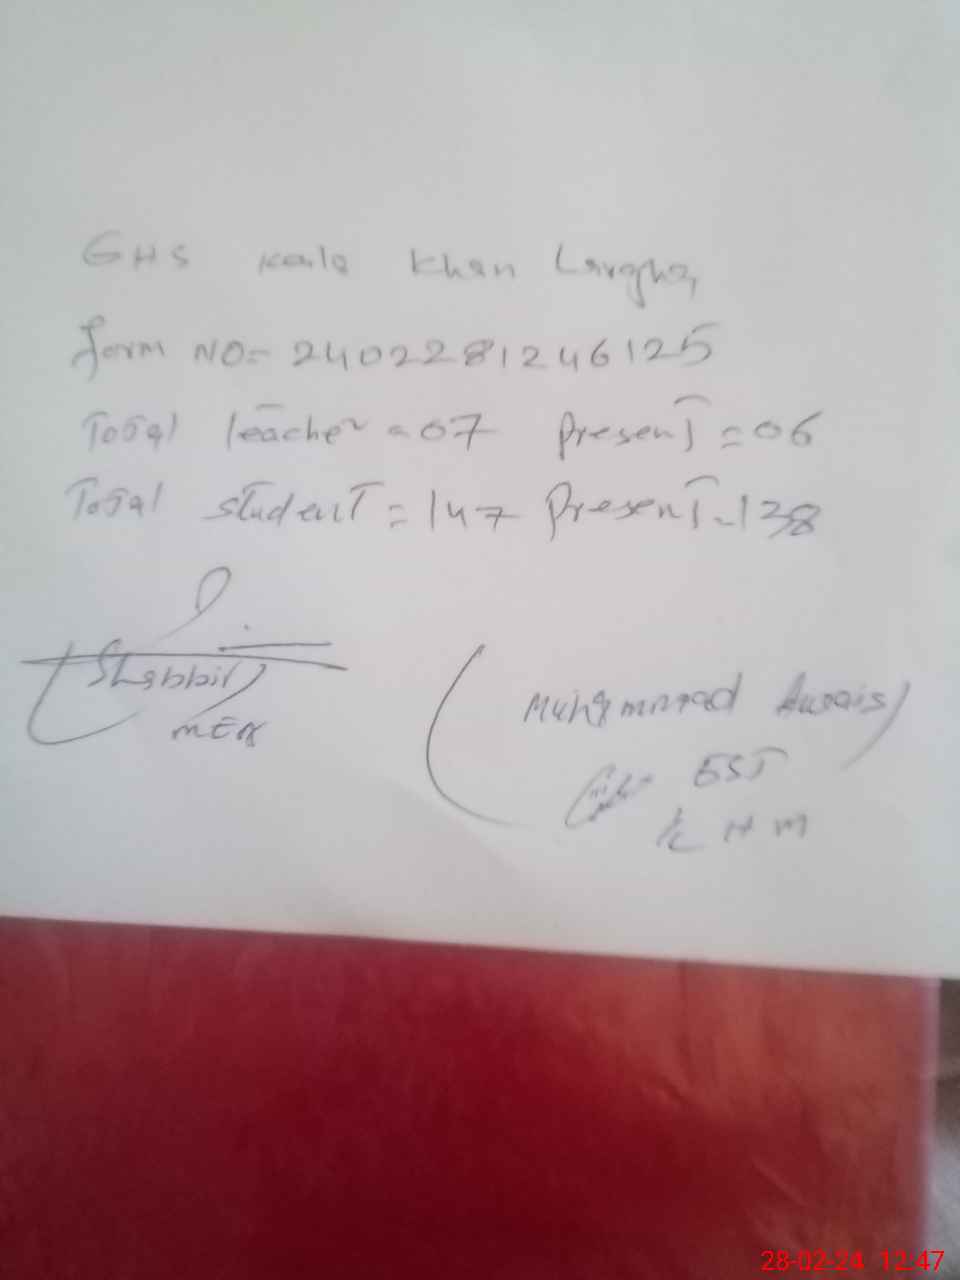 GHS Kala Khan Langha
form NO= 2402281246125
Total teacher = 07 Present = 06
Total student = 147 Present - 138
(Shabbir)
MEA
(Muhammad Awais)
EST
I/C H M
28-02-24 12:47